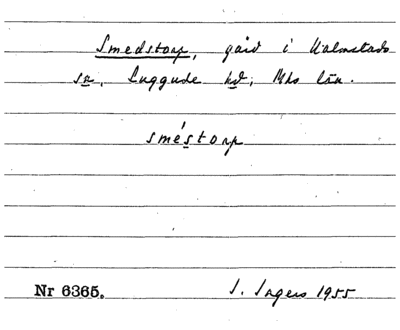 Smedstorp, gård i Halmstads
sn, Luggude hd, Mhs län.
sméstorp
Nr 6365. I. Ingers 1955